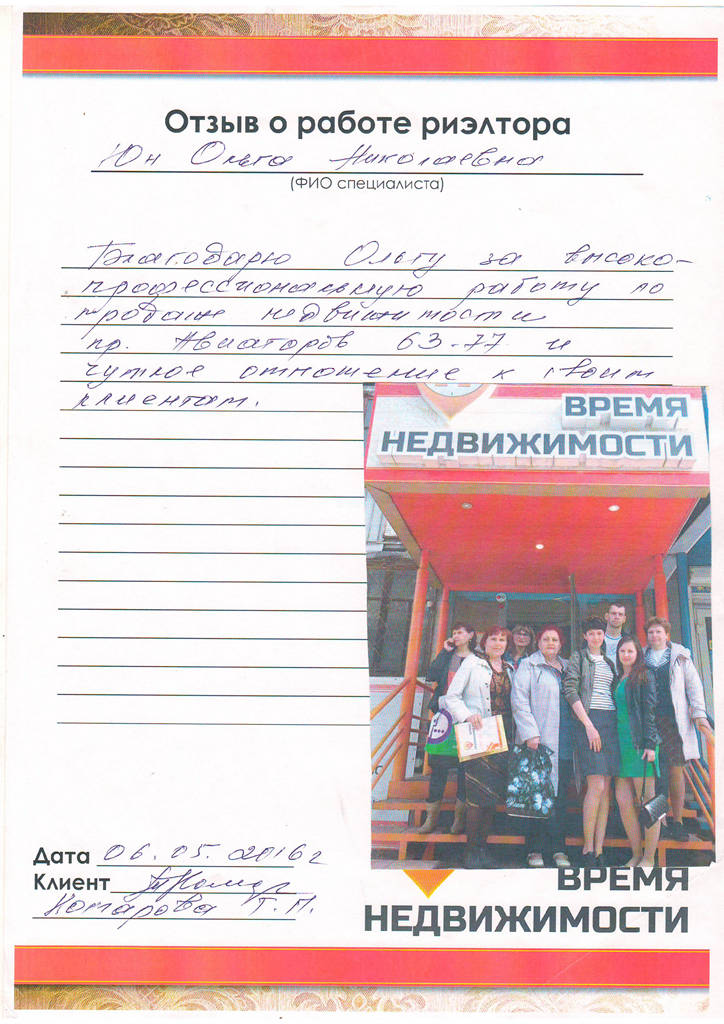 Отзыв о работе риэлтора
Юн Ольга Николаевна
(ФИО специалиста)
Благодарю Ольгу за высоко-
профессиональную работу по
продаже недвижимости
пр. Авиаторов 63-77 и
чуткое отношение к своим
клиентам.
ВРЕМЯ
НЕДВИЖИМОСТИ
Дата 06.05.2016г
Клиент
Комарова Т.П.
ВРЕМЯ
НЕДВИЖИМОСТИ